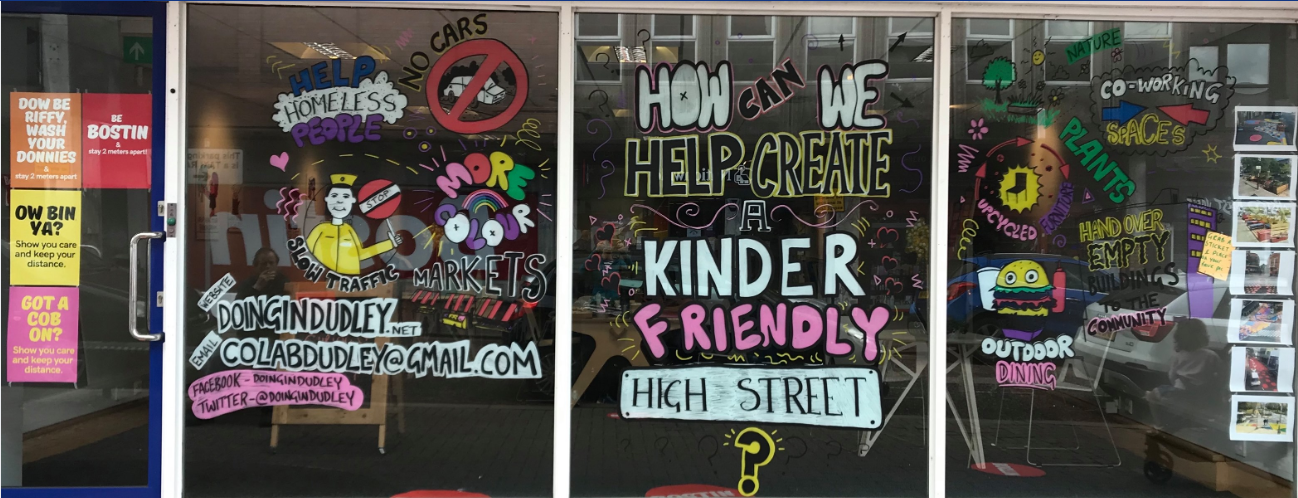 DOW BE
RIFFY,
WASH
YOUR
DONNIES
&
stay 2 meters apart
BE
BOSTIN
&
stay 2 meters apart!
OW BIN
YA?
Show you care
and keep your
distance.
GOT A
COB
ON?
Show you care
and keep your
distance.
HELP
HOMELESS
PEOPLE
NO CARS
STOP
SLOW TRAFFIC
MORE
COLOUR
MARKETS
WEBSITE
DOINGINDUDLEY.NET
EMAIL
COLABDUDLEY@GMAIL.COM
FACEBOOK - DOINGINDUDLEY
TWITTER - @DOINGINDUDLEY
HOW CAN WE
HELP CREATE
A
KINDER
FRIENDLY
HIGH STREET
?
NATURE
CO-WORKING
SPACES
PLANTS
UPCYCLED
FURNITURE
HAND OVER
EMPTY
BUILDINGS
TO THE
COMMUNITY
OUTDOOR
DINING
GRAB A
STICKER
& PLACE